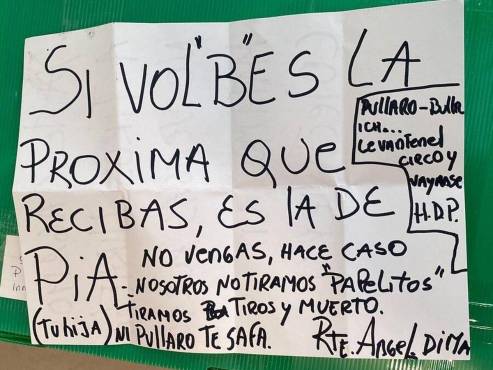 SI VOL"B"ES LA
PROXIMA QUE
RECIBAS, ES LA DE
PIA.
(tu hija)
NO VENGAS, HACE CASO
NOSOTROS NO TIRAMOS "PAPELITOS"
TIRAMOS TIROS y MUERTO.
NI PULLARO TE SAFA.
RTE. ANGEL DIMA
PULLARO-Bulla
ICH...
LEVANTEN EL
CIRCO y
VAYANSE
H.D.P.